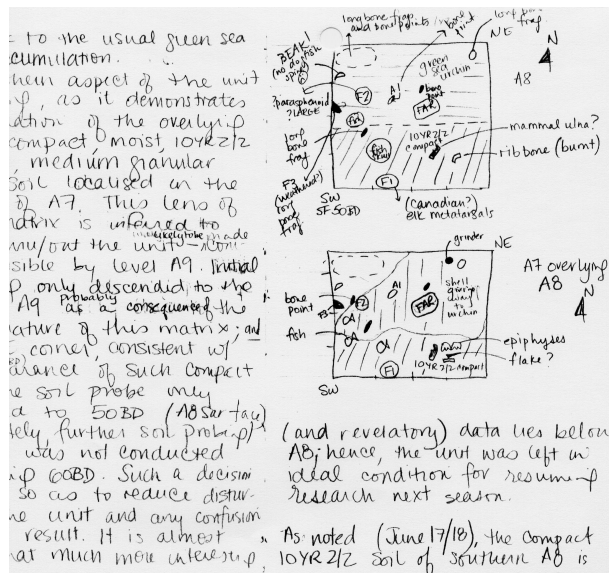 to the usual green sea
cumulation.
aspect of the unit
as it demonstrates
ation of the overlying
compact, moist, 10YR2/2
medium granular
soil localised in the
of A7. This lens of
atrix is inferred to
likely to be made
out the unit
sible by level A9. Initial
only descended to the
A9 probably as a consequence of the
ature of this matrix; and
corner, consistent w/
arance of such compact
e soil probe only
d to 50BD (A8 Surface)
tely, further soil probing
was not conducted
60BD. Such a decision
so as to reduce distur-
he unit and any confusion
result. It is almost
at much more interesting
long bone frags
and bone points
bone
point
long bone
frag.
NE
N
A8
BEAK!
(no dogfish
spine)
parasphenoid
?LARGE
long
bone
frag
F3
(weathered?)
long
bone
frag.
F2
A1
green
sea
urchin
bone
point
FAR
10YR2/2
compact
mammal ulna?
rib bone (burnt)
F1
SW
SF50BD
(Canadian?)
elk metatarsals
grinder
NE
A7 overlying
A8
N
bone
point
F3
F2
A1
FAR
shell
giving
way
to
urchin
fish
epiphyses
flake?
F1
10YR2/2 compact
SW
(and revelatory) data lies below
A8; hence, the unit was left in
ideal condition for resuming
research next season.
As noted (June 17/18), the compact
10YR 2/2 soil of southern A8 is